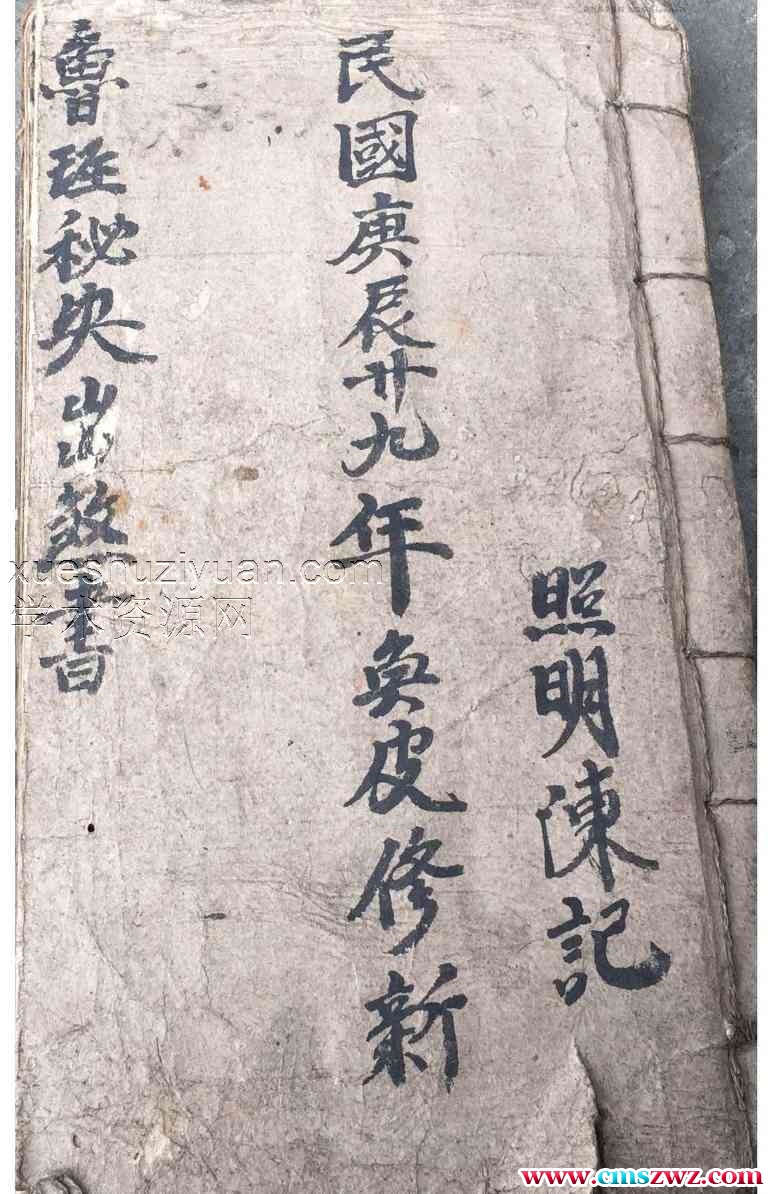 照明陳記
民國庚辰廿九年奐皮修新
魯班秘失出煞書
xueshuziyuan.com
学术资源网
www.cmszwz.com